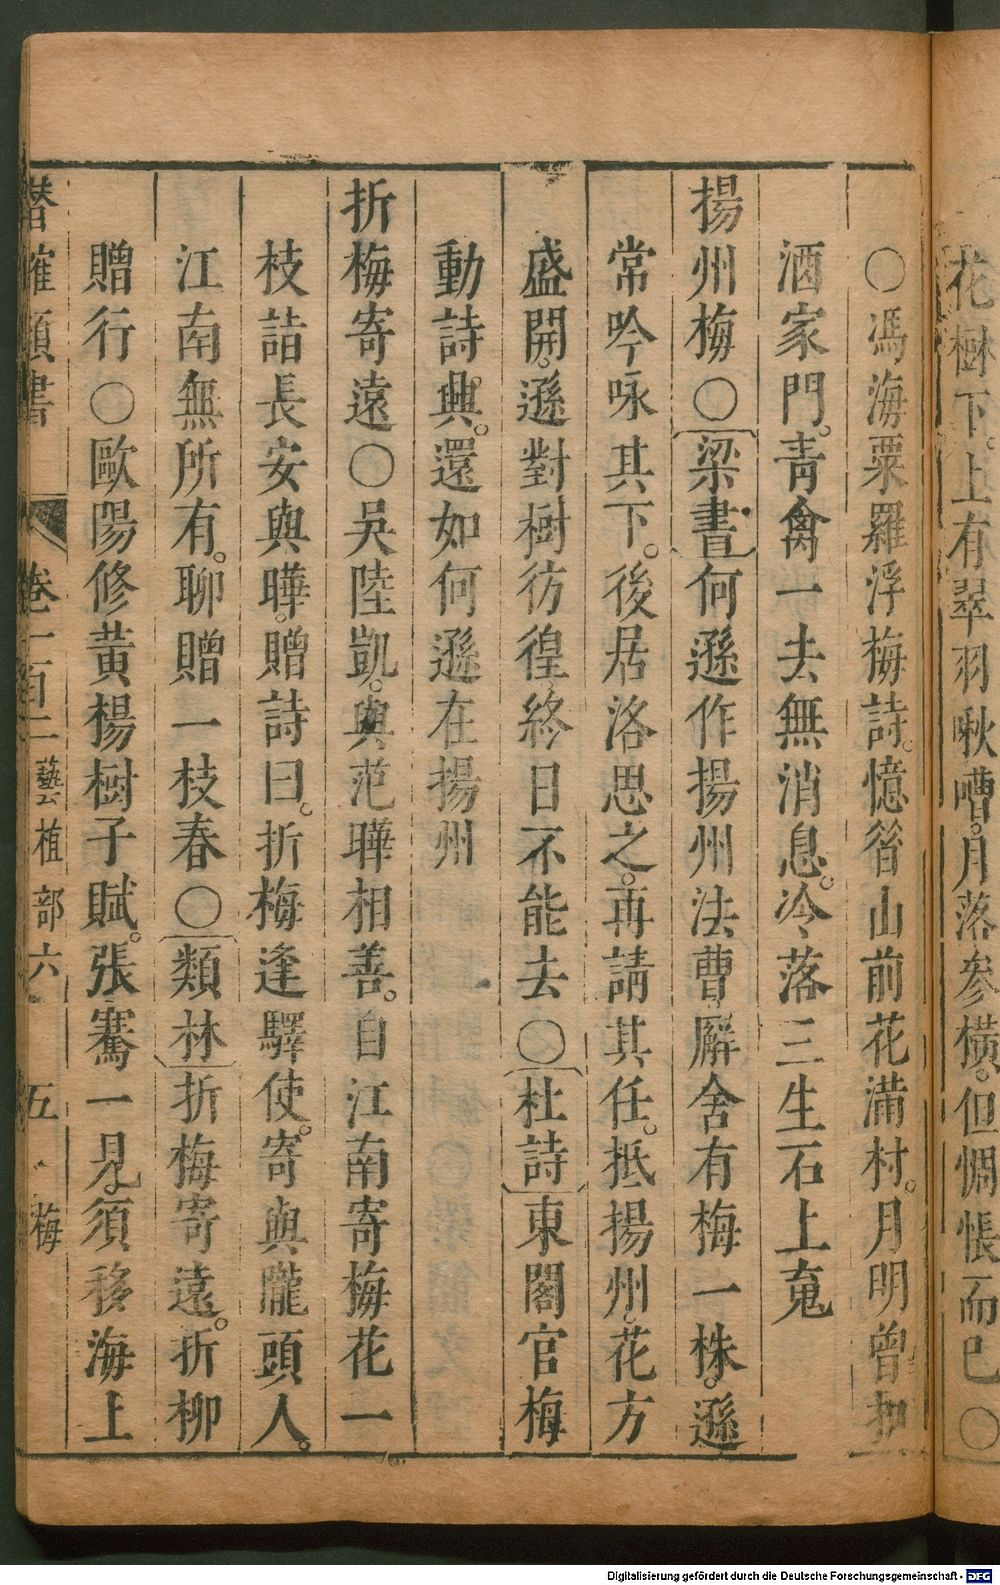 花樹下。上有翠羽啾嘈。月落參橫。但惆悵而已○
○馮海粟羅浮梅詩。憶昝山前花滿村。月明曾扣
酒家門。靑禽一去無消息。冷落三生石上䰟
揚州梅○梁書何遜作揚州法曹。廨舍有梅一株。遜
常吟咏其下。後居洛思之。再請其任。抵揚州。花方
盛開。遜對樹彷徨終日不能去○杜詩東閣官梅
動詩興。還如何遜在揚州
折梅寄遠○吳陸凱。與范曄相善。自江南寄梅花一
枝詣長安與曄。贈詩曰。折梅逢驛使。寄與隴頭人。
江南無所有。聊贈一枝春○類林折梅寄遠。折柳
贈行○歐陽修黃楊樹子賦。張騫一見。須移海上
潛確類書 卷一百二 藝植部六 五 梅
Digitalisierung gefördert durch die Deutsche Forschungsgemeinschaft - DFG